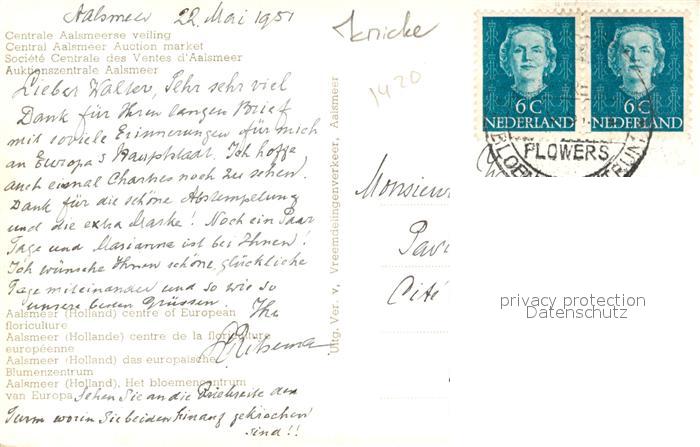 Aalsmeer 22 Mai 1951
Centrale Aalsmeerse veiling
Central Aalsmeer Auction market
Société Centrale des Ventes d'Aalsmeer
Auktionszentrale Aalsmeer
Lieber Walter, Sehr sehr viel
Dank für Ihren langen Brief
mit soviele Erinnerungen für mich
an Europa's Hauptstaat. Ich hoffe
auch einmal Chartres noch zu sehen!
Dank für die schöne Abstempelung
und die extra Marke! Noch ein Paar
Tage und Marianne ist bei Ihnen!
Ich wünsche Ihnen schöne, glückliche
Tage miteinander und so wie so
unsere besten Grüssen. Ihr
Aalsmeer (Holland) centre of European
floriculture
Aalsmeer (Hollande) centre de la floriculture
européenne
Aalsmeer (Holland) das europaische
Blumenzentrum
Aalsmeer (Holland), Het bloemencentrum
van Europa
Sehen Sie an die Rückseite den
Turm worin Sie beiden hinauf gekrochen
sind!!
Uitg. Ver. v. Vreemdelingenverkeer, Aalsmeer
1420
6 C
NEDERLAND
6 C
NEDERLAND
FLOWERS
Monsieur
Cité
privacy protection
Datenschutz